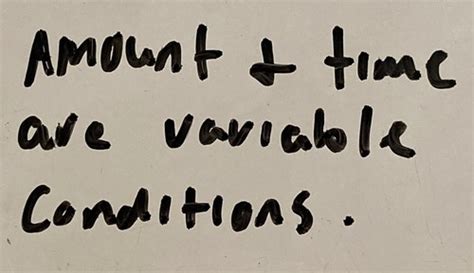 Amount + time
are variable
Conditions.